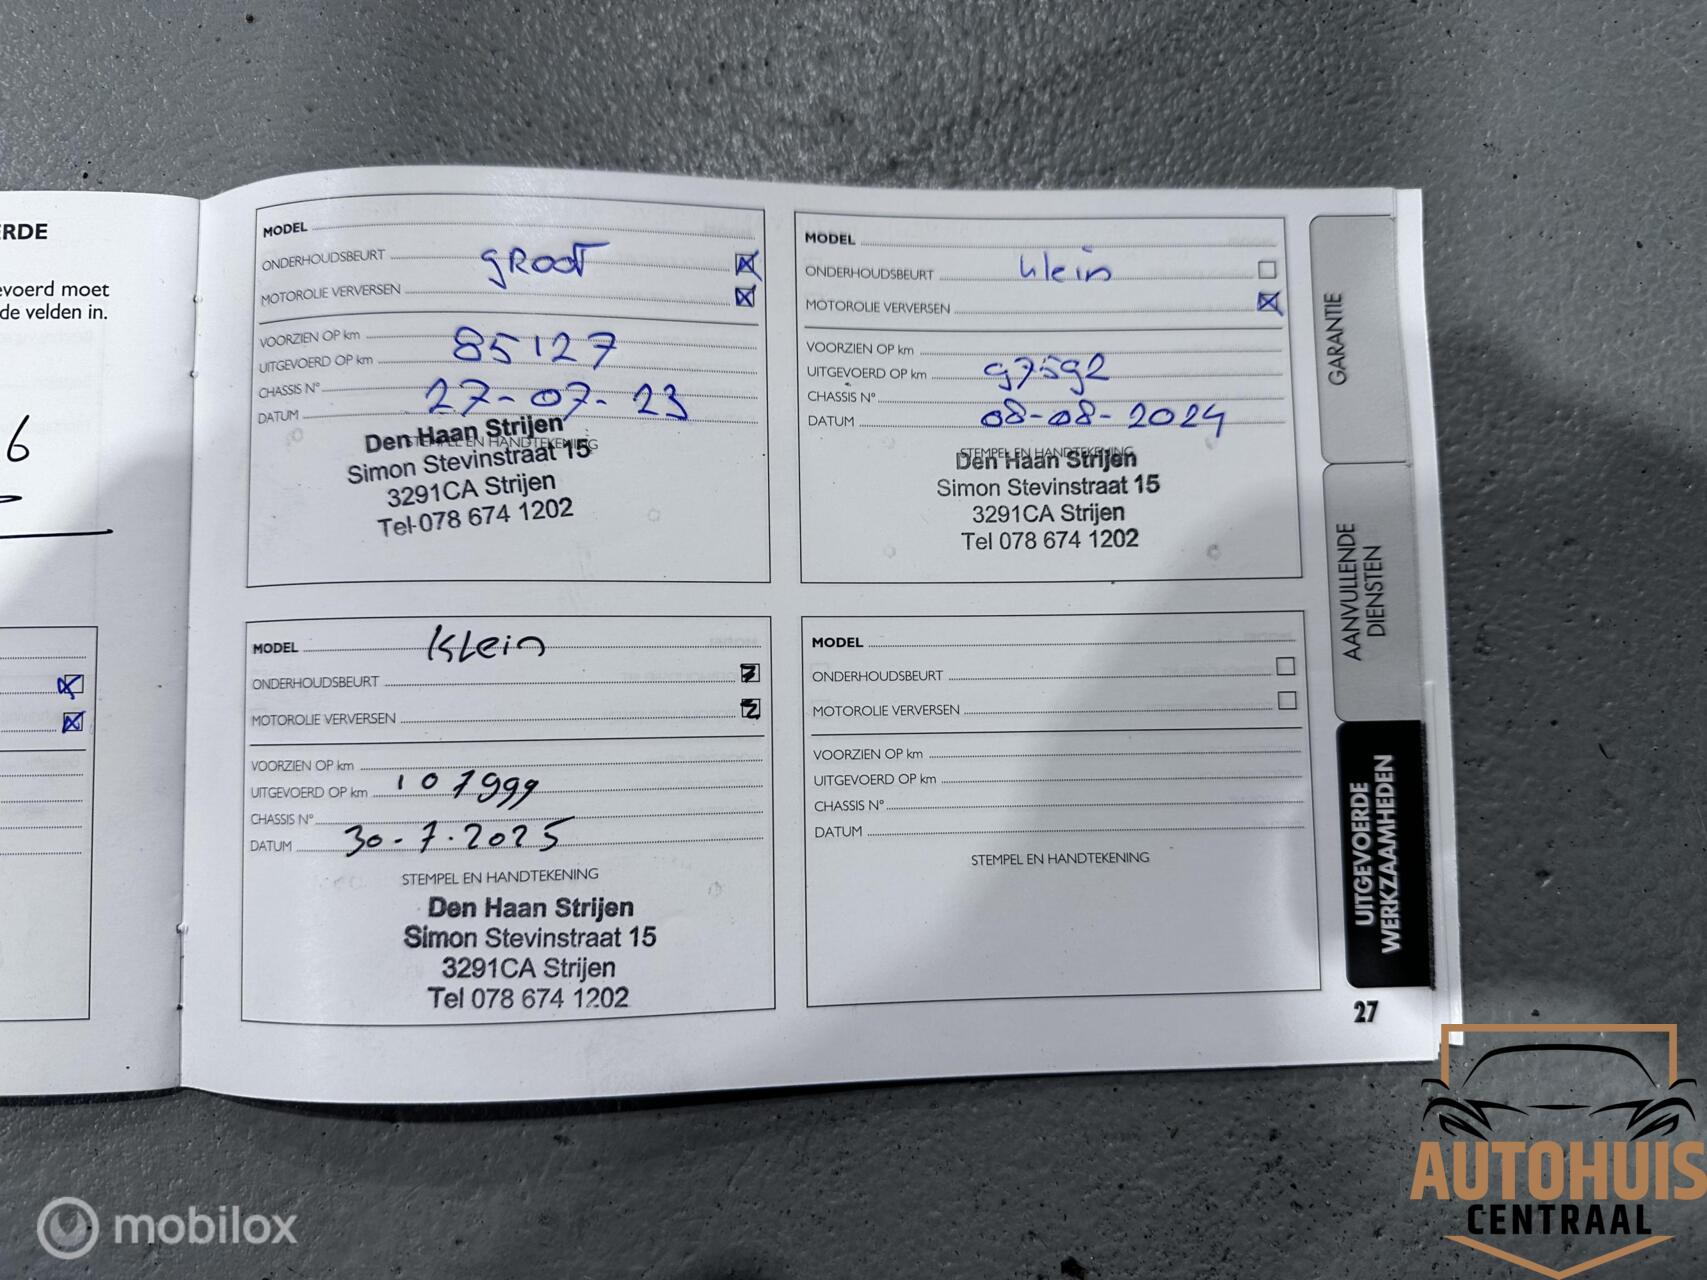 ERDE
evoerd moet
de velden in.
6
MODEL
ONDERHOUDSBEURT groot
MOTOROLIE VERVERSEN
VOORZIEN OP km
UITGEVOERD OP km 85127
CHASSIS N°
DATUM 27-07-23
STEMPEL EN HANDTEKENING
Den Haan Strijen
Simon Stevinstraat 15
3291CA Strijen
Tel 078 674 1202
MODEL
ONDERHOUDSBEURT klein
MOTOROLIE VERVERSEN
VOORZIEN OP km
UITGEVOERD OP km 97592
CHASSIS N°
DATUM 08-08-2024
STEMPEL EN HANDTEKENING
Den Haan Strijen
Simon Stevinstraat 15
3291CA Strijen
Tel 078 674 1202
MODEL Klein
ONDERHOUDSBEURT
MOTOROLIE VERVERSEN
VOORZIEN OP km
UITGEVOERD OP km 107999
CHASSIS N°
DATUM 30-7-2025
STEMPEL EN HANDTEKENING
Den Haan Strijen
Simon Stevinstraat 15
3291CA Strijen
Tel 078 674 1202
MODEL
ONDERHOUDSBEURT
MOTOROLIE VERVERSEN
VOORZIEN OP km
UITGEVOERD OP km
CHASSIS N°
DATUM
STEMPEL EN HANDTEKENING
GARANTIE
AANVULLENDE
DIENSTEN
UITGEVOERDE
WERKZAAMHEDEN
27
mobilox
AUTOHUIS
CENTRAAL